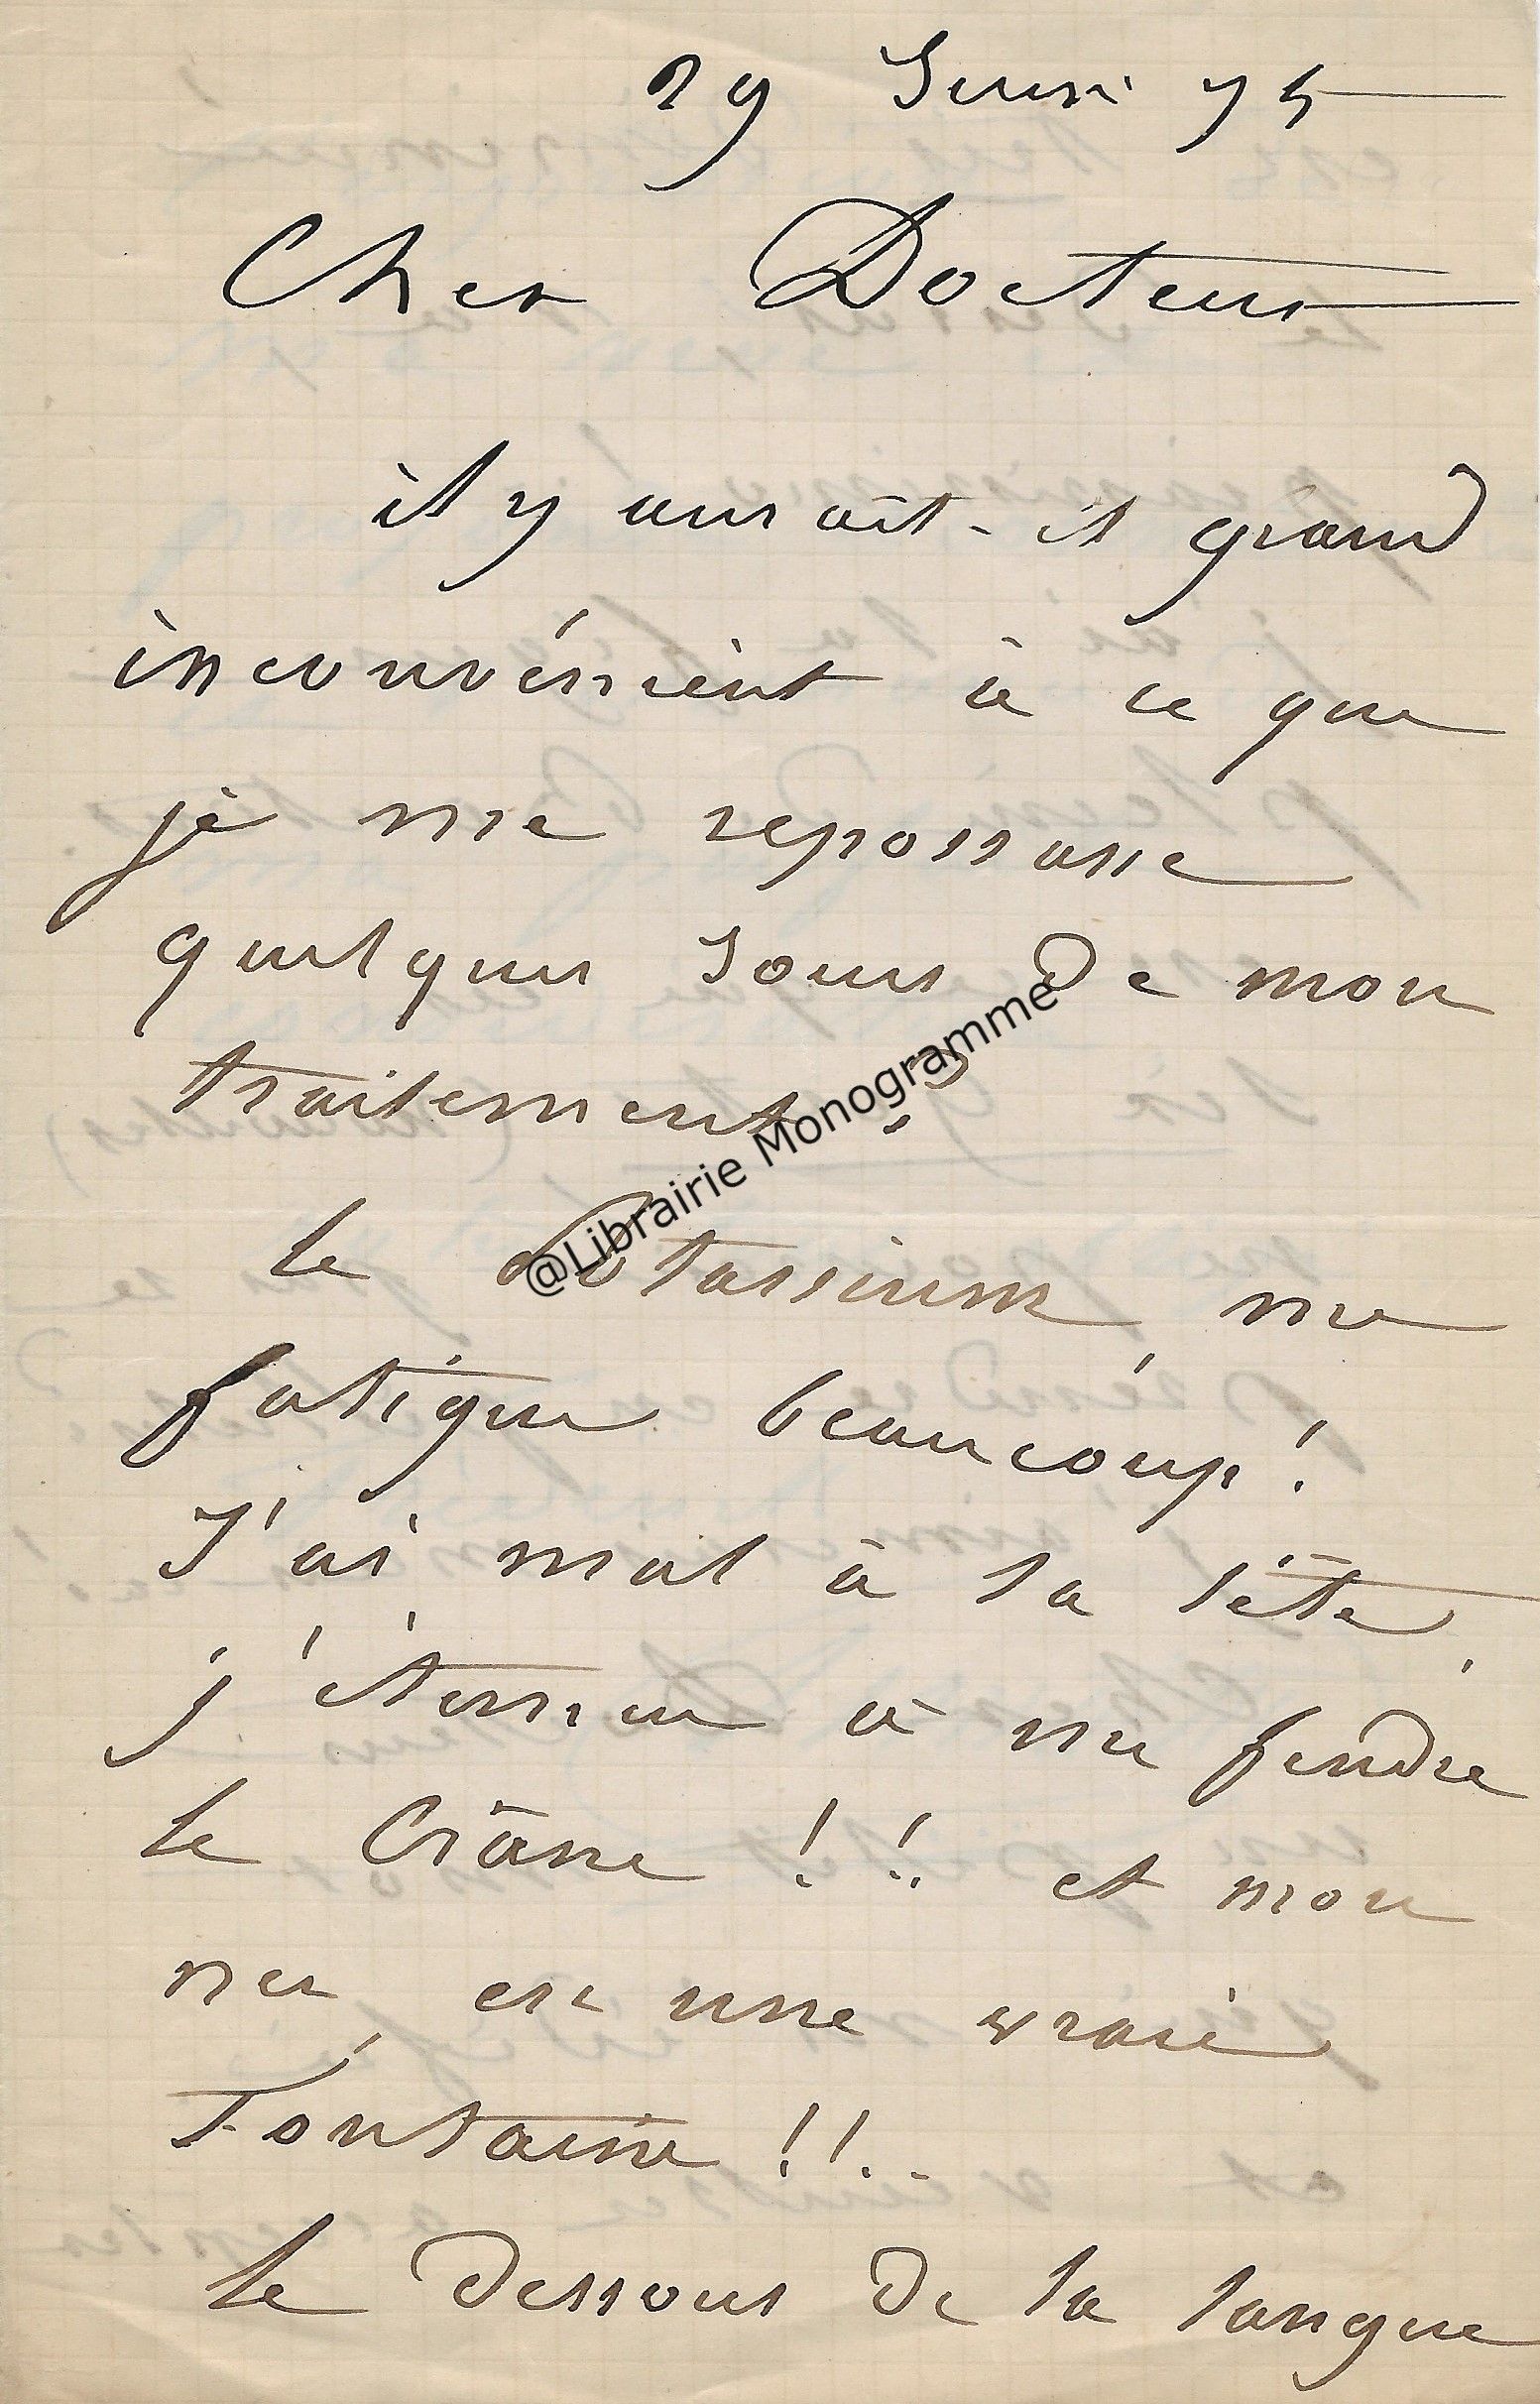 29 Juin 75
Cher Docteur
il y aurait-il grand
inconvénient à ce que
je me reposasse
quelques jours de mon
traitement?
@Librairie Monogramme
le Potassium me
fatigue beaucoup!
J'ai mal à la tête,
j'éternue à me fendre
le Crâne!! et mon
nez est une vraie
Fontaine!!..
le dessous de la langue